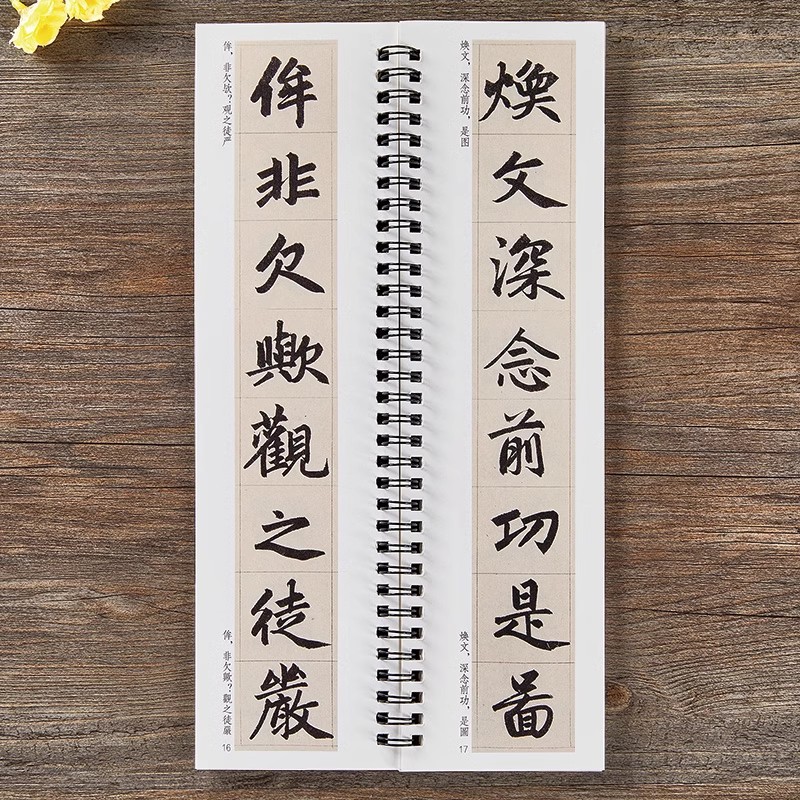 侔，非欠欤？观之徒严
侔非欠歟觀之徒嚴
侔，非欠歟？觀之徒嚴
16
焕文，深念前功，是图
煥文深念前功是啚
煥文，深念前功，是圖
17